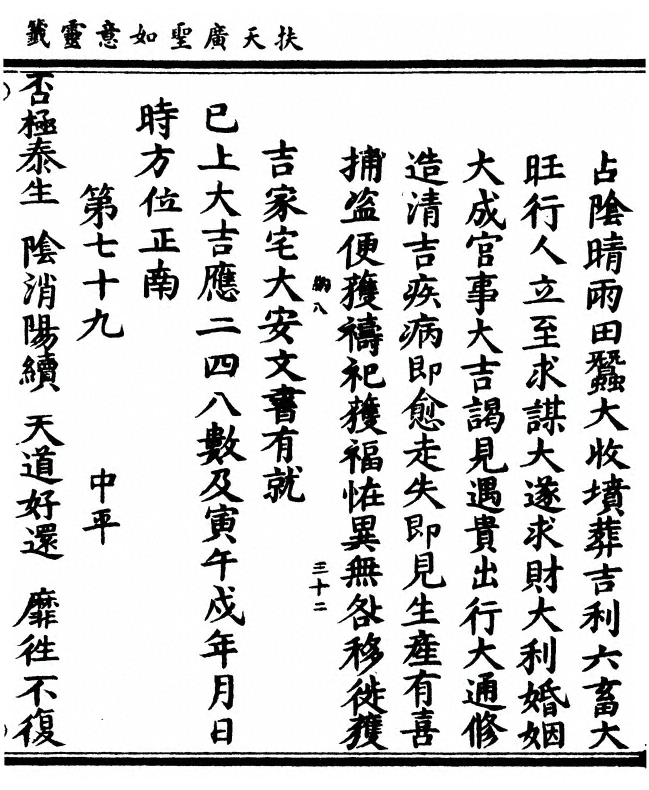 扶天廣聖如意靈籤
占陰晴雨田蠶大收墳葬吉利六畜大
旺行人立至求謀大遂求財大利婚姻
大成官事大吉謁見遇貴出行大通修
造清吉疾病即愈走失即見生產有喜
捕盜便獲禱祀獲福怪異無咎移徙獲
三十二
吉家宅大安文書有就
已上大吉應二四八數及寅午戌年月日
時方位正南
第七十九 中平
否極泰生 陰消陽續 天道好還 靡往不復